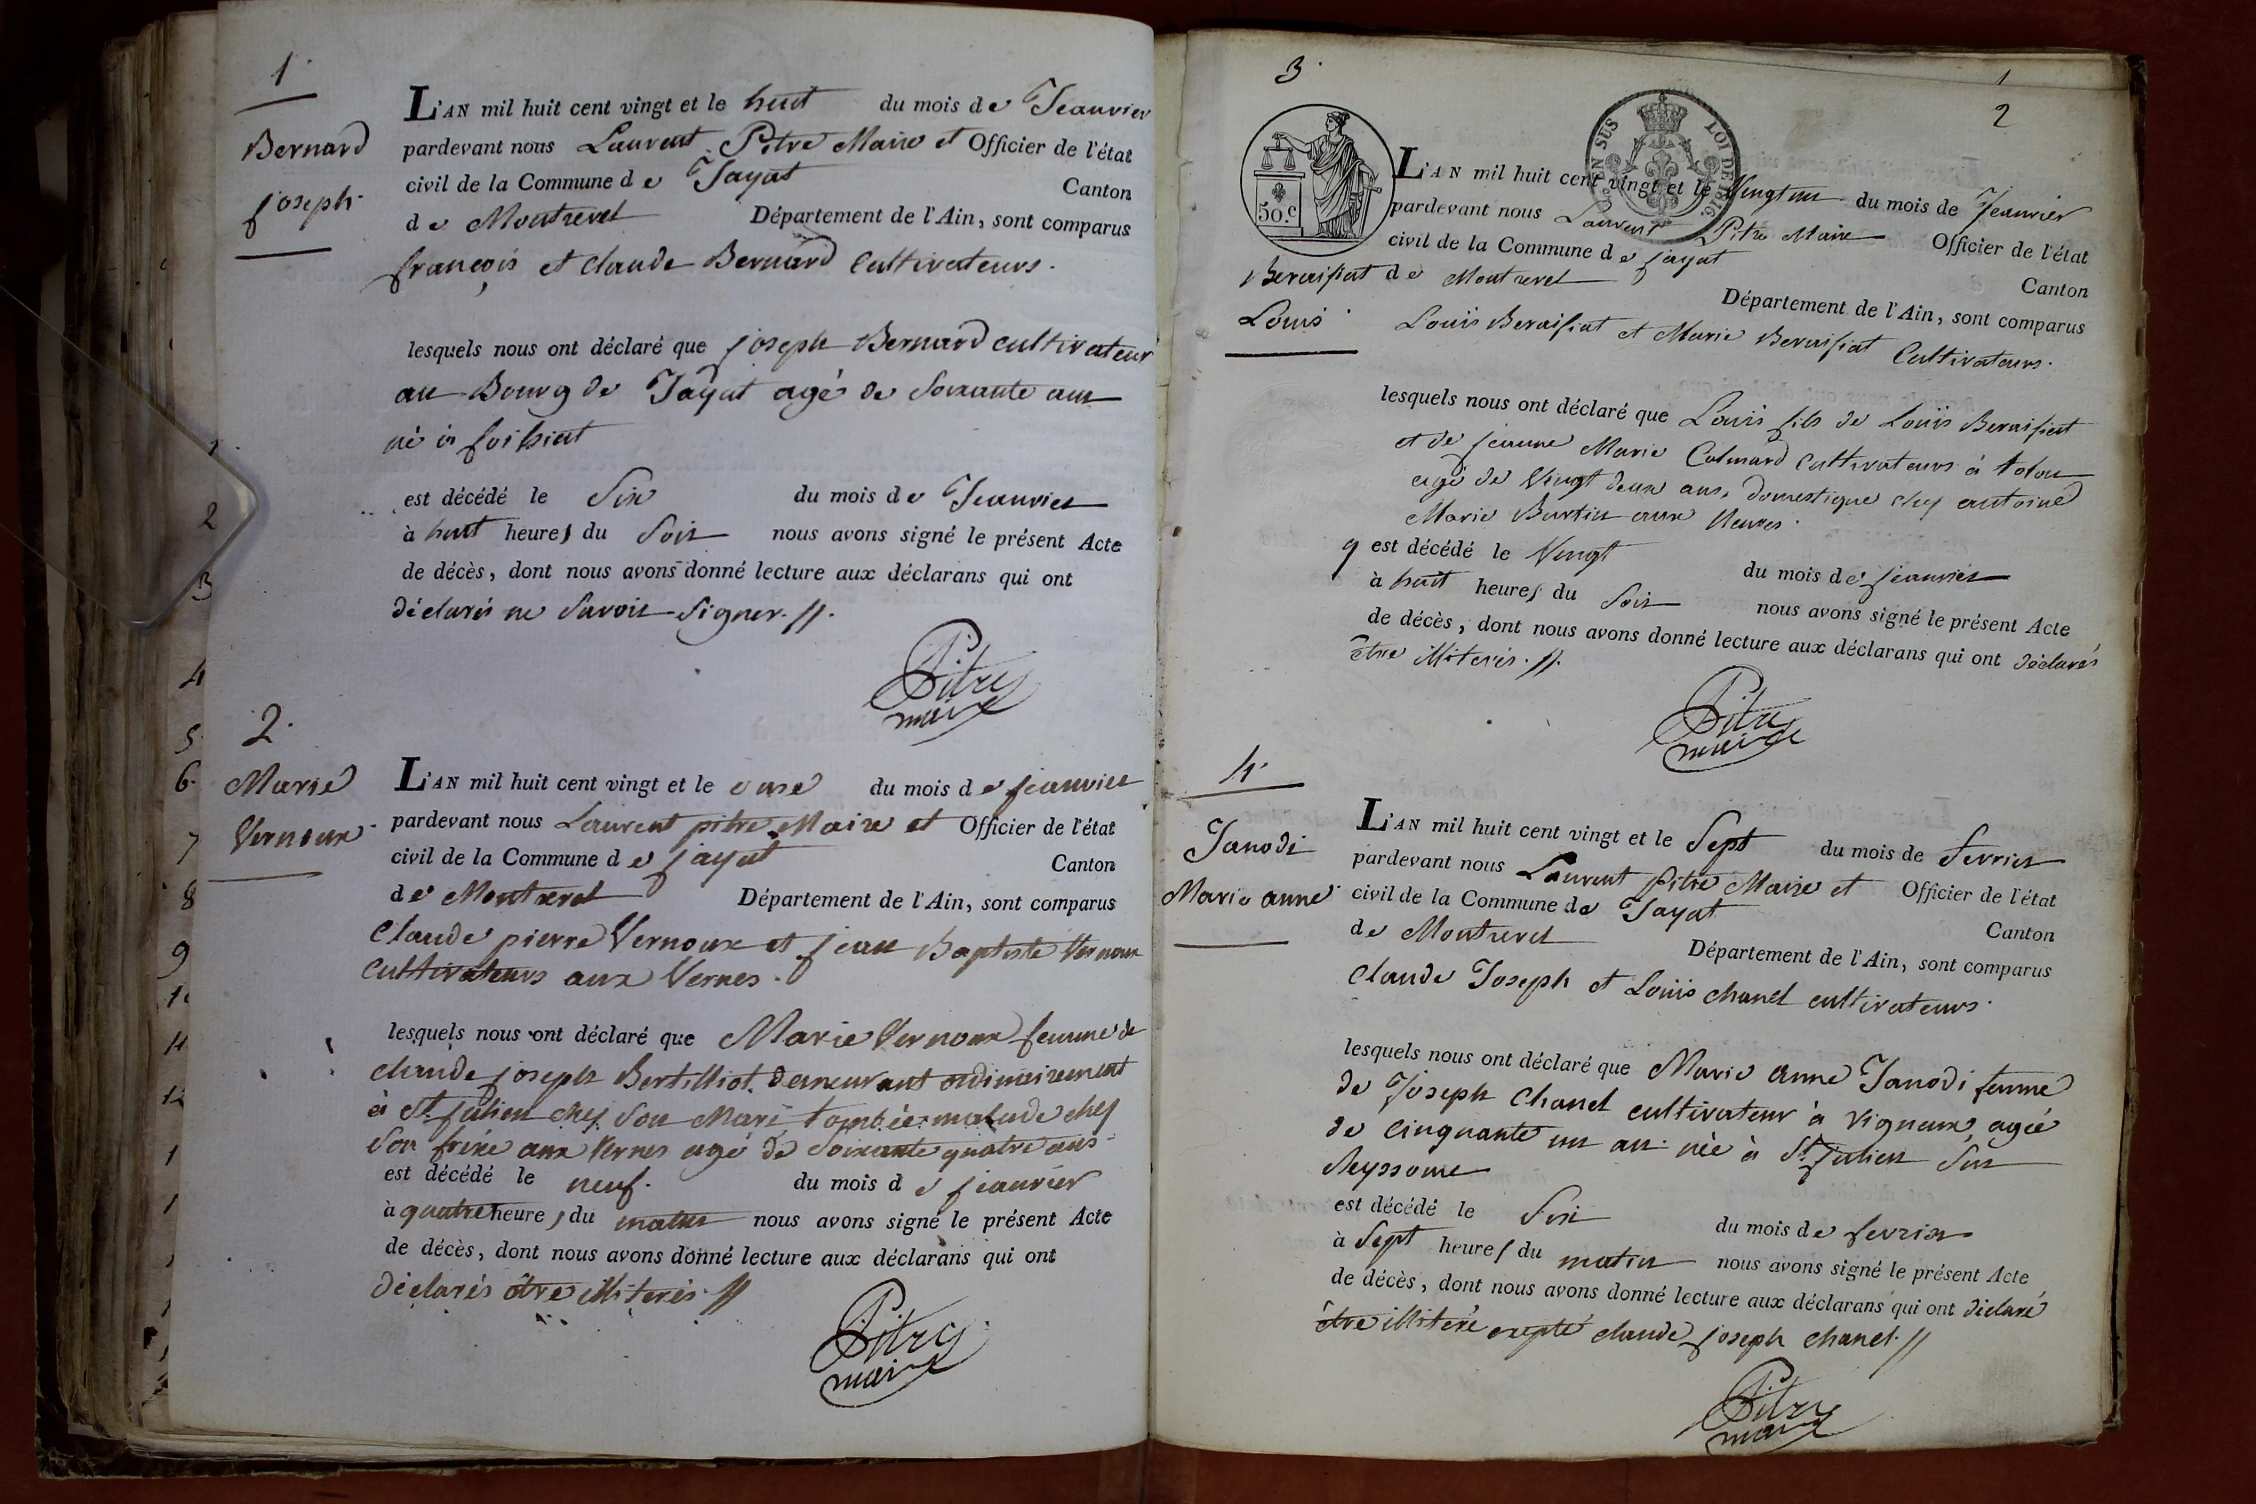 1.
Bernard
joseph.
L'AN mil huit cent vingt et le huit du mois de Jeanvier
pardevant nous Laurent Pitre Maire et Officier de l'état
civil de la Commune de Jayat Canton
de Montrevel Département de l'Ain, sont comparus
françois et claude Bernard Cultivateurs.
lesquels nous ont déclaré que joseph Bernard cultivateur
au Bourg de Jayat agé de Soixante ans
né à foissiat
est décédé le Six du mois de Jeanvier
à huit heures du Soir nous avons signé le présent Acte
de décès, dont nous avons donné lecture aux déclarans qui ont
déclarés ne Savoir Signer. //.
Pitre
maire
2.
Marie
Vernoux
L'AN mil huit cent vingt et le onse du mois de jeanvier
pardevant nous Laurent pitre Maire et Officier de l'état
civil de la Commune de jayat Canton
de Montrevel Département de l'Ain, sont comparus
Claude pierre Vernoux et jean Baptiste Vernoux
cultivateurs aux Vernes.
lesquels nous ont déclaré que Marie Vernoux femme de
claude joseph Bertilliot demeurant ordinairement
à St julien chez Son Mari tombée malade chez
Son frère aux Vernes agé de Soixante quatre ans
est décédé le neuf. du mois de jeanvier
à quatre heures du matin nous avons signé le présent Acte
de décès, dont nous avons donné lecture aux déclarans qui ont
déclarés être illiterés. //
Pitre
maire
1
2
3
4
5
6.
7
8
9
3.
1
2
50.c
EN SUS
LOI DE
Beraisiat
Louis
L'AN mil huit cent vingt et le Vingt un du mois de Jeanvier
pardevant nous Laurent Pitre Maire Officier de l'état
civil de la Commune de jayat Canton
de Montrevel Département de l'Ain, sont comparus
Louis Beraisiat et Marie Beraisiat Cultivateurs.
lesquels nous ont déclaré que Louis fils de Louis Beraisiat
et de jeanne Marie Calmard cultivateurs à
agé de Vingt deux ans, domestique chez antoine
Marie Burtin aux
est décédé le Vingt du mois de jeanvier
à huit heures du Soir nous avons signé le présent Acte
de décès, dont nous avons donné lecture aux déclarans qui ont déclarés
être illiterés. //.
Pitre
maire
4.
Janodi
Marie anne
L'AN mil huit cent vingt et le Sept du mois de fevrier
pardevant nous Laurent Pitre Maire et Officier de l'état
civil de la Commune de Jayat Canton
de Montrevel Département de l'Ain, sont comparus
Claude Joseph et Louis chanel cultivateurs.
lesquels nous ont déclaré que Marie anne Janodi femme
de Joseph Chanel cultivateur à Vigneux agée
de Cinquante un an. née à St julien Sur
Reyssouse
est décédé le Six du mois de fevrier
à Sept heures du matin nous avons signé le présent Acte
de décès, dont nous avons donné lecture aux déclarans qui ont déclaré
être illiteré excepté claude joseph chanel. //
Pitre
maire